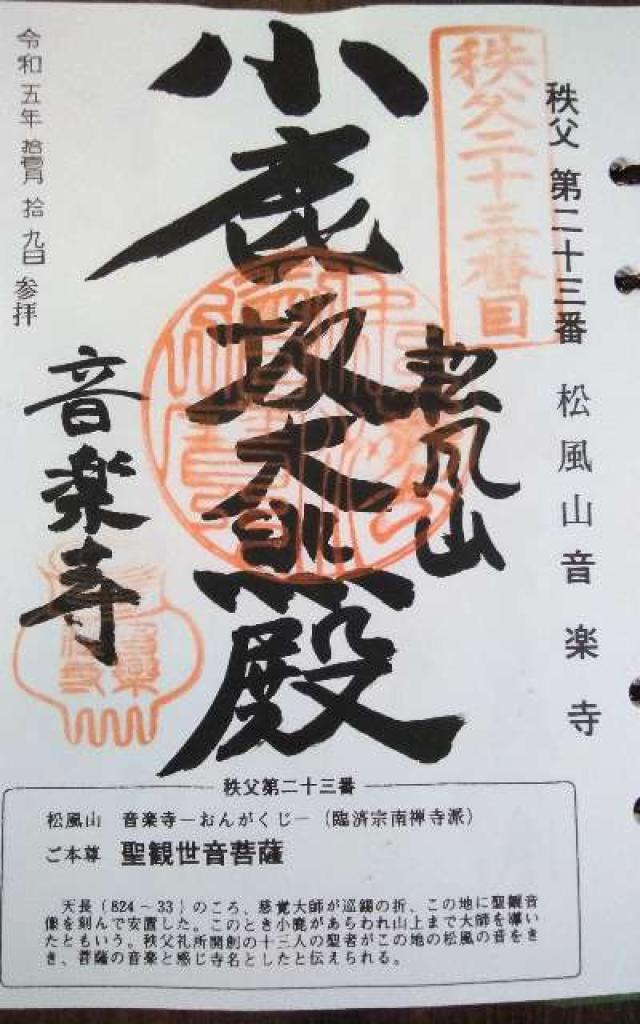 秩父 第二十三番 松風山音楽寺
秩父二十三番目
松風山
小鹿坂大悲殿
音楽寺
令和五年 拾壱月 拾九日 参拝
秩父第二十三番
松風山 音楽寺―おんがくじ―(臨済宗南禅寺派)
ご本尊 聖観世音菩薩
天長(824~33)のころ、慈覚大師が巡錫の折、この地に聖観音
像を刻んで安置した。このとき小鹿があらわれ山上まで大師を導い
たともいう。秩父札所開創の十三人の聖者がこの地の松風の音をき
き、菩薩の音楽と感じ寺名としたと伝えられる。